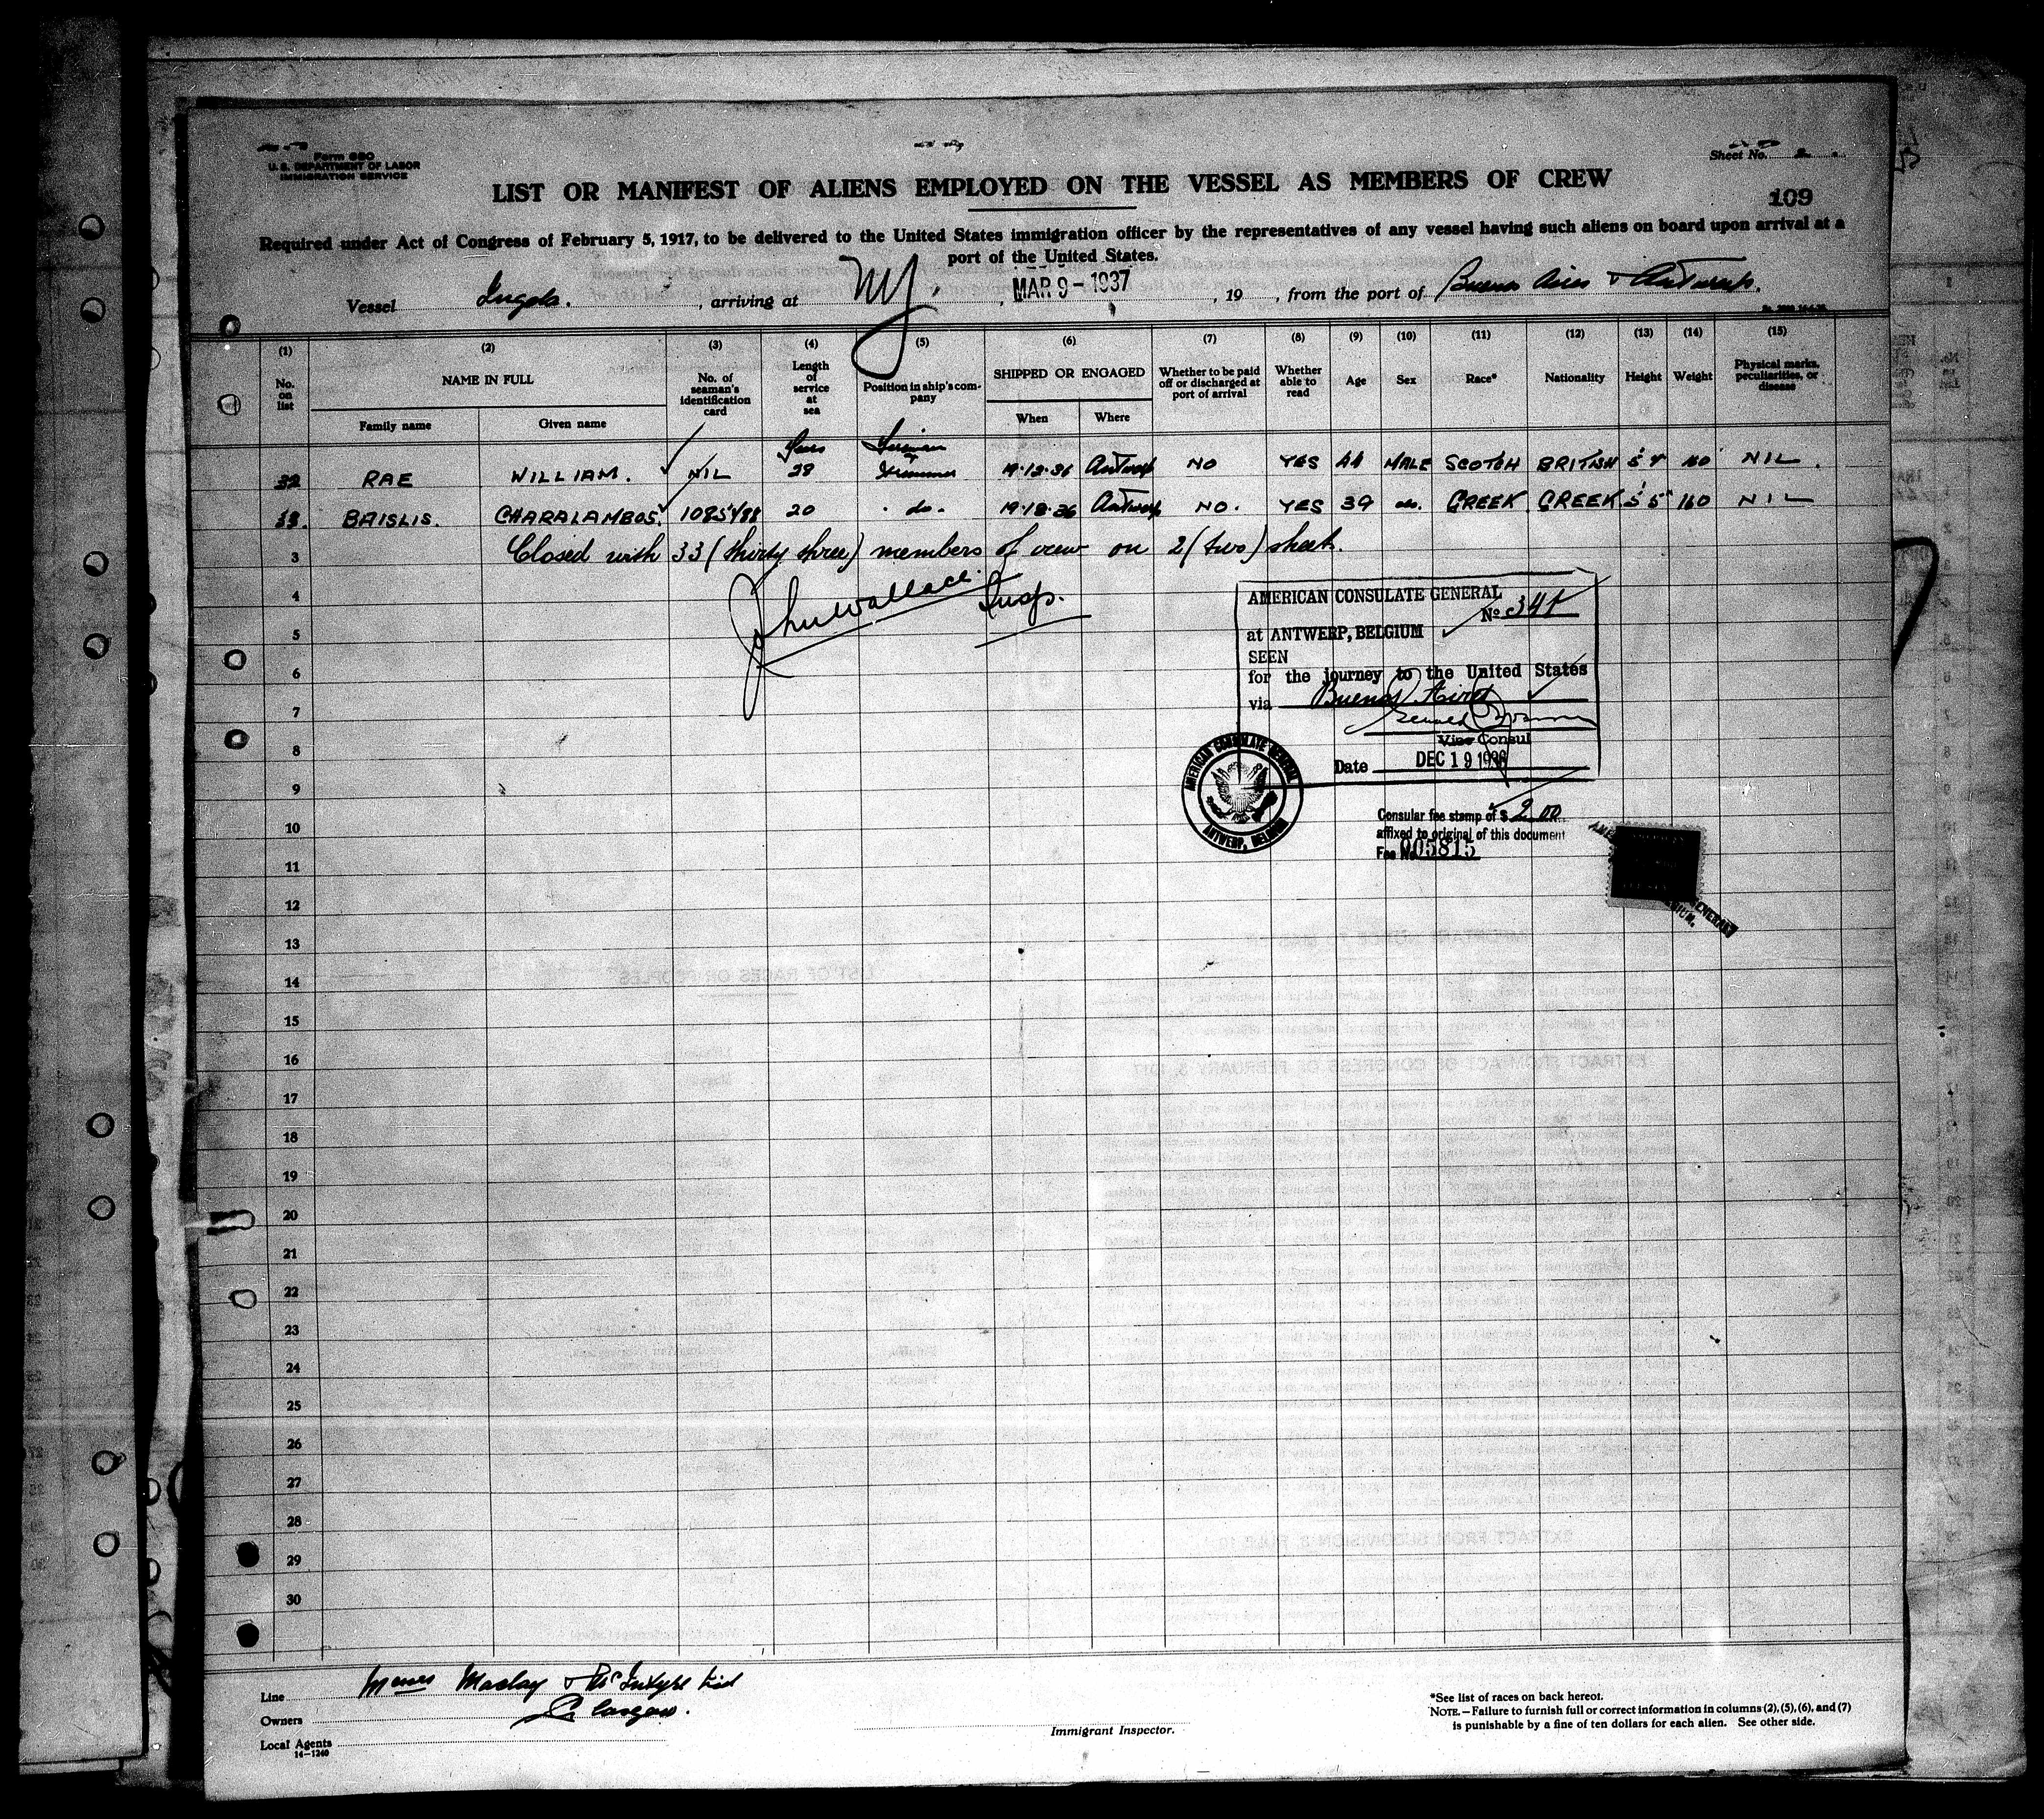 Form 680
U. S. DEPARTMENT OF LABOR
IMMIGRATION SERVICE
Sheet No. 2
LIST OR MANIFEST OF ALIENS EMPLOYED ON THE VESSEL AS MEMBERS OF CREW
109
Required under Act of Congress of February 5, 1917, to be delivered to the United States immigration officer by the representatives of any vessel having such aliens on board upon arrival at a
port of the United States.
Vessel , arriving at NY. , MAR 9 - 1937 , 19 , from the port of Buenos Aires & Antwerp.
(1) (2) (3) (4) (5) (6) (7) (8) (9) (10) (11) (12) (13) (14) (15)
No. on list
NAME IN FULL
Family name Given name
No. of seaman's identification card
Length of service at sea
Position in ship's company
SHIPPED OR ENGAGED
When Where
Whether to be paid off or discharged at port of arrival
Whether able to read
Age
Sex
Race*
Nationality
Height
Weight
Physical marks, peculiarities, or disease
Years Fireman
32 RAE WILLIAM. NIL 28 & Trimmer 19·12·36 Antwerp NO YES 44 MALE SCOTCH BRITISH NIL.
33. BAISLIS. CHARALAMBOS. 20 - do - 19·12·36 Antwerp NO. YES 39 do. GREEK. GREEK. 5'5" 160 NIL
3 Closed with 33 (thirty three) members of crew on 2 (two) sheet.
4
John Wallace. Insp.
5
6
7
8
9
10
11
12
13
14
15
16
17
18
19
20
21
22
23
24
25
26
27
28
29
30
AMERICAN CONSULATE GENERAL
No
at ANTWERP, BELGIUM
SEEN
for the journey to the United States
via Buenos Aires
Vice Consul
Date DEC 19 1936
AMERICAN CONSULATE GENERAL
ANTWERP, BELGIUM
Consular fee stamp of $ 2.00
affixed to original of this document
Fee No 005815
Line Messrs Maclay & McIntyre Ltd
Owners Glasgow.
Local Agents
14—1240
Immigrant Inspector.
*See list of races on back hereof.
NOTE.—Failure to furnish full or correct information in columns (2), (5), (6), and (7)
is punishable by a fine of ten dollars for each alien. See other side.